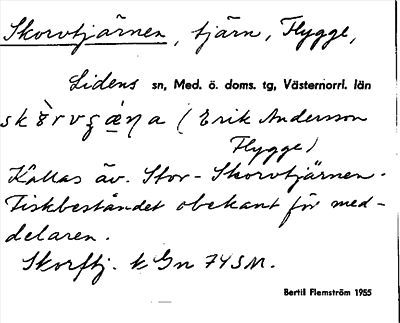 Skorvtjärnen, tjärn, Flygge,
Lidens sn, Med. ö. doms. tg, Västernorrl. län
(Erik Andersson
Flygge)
Kallas äv. Stor-Skorvtjärnen.
Fiskbeståndet obekant för med-
delaren.
Skorftj. k Gn 74SM.
Bertil Flemström 1955